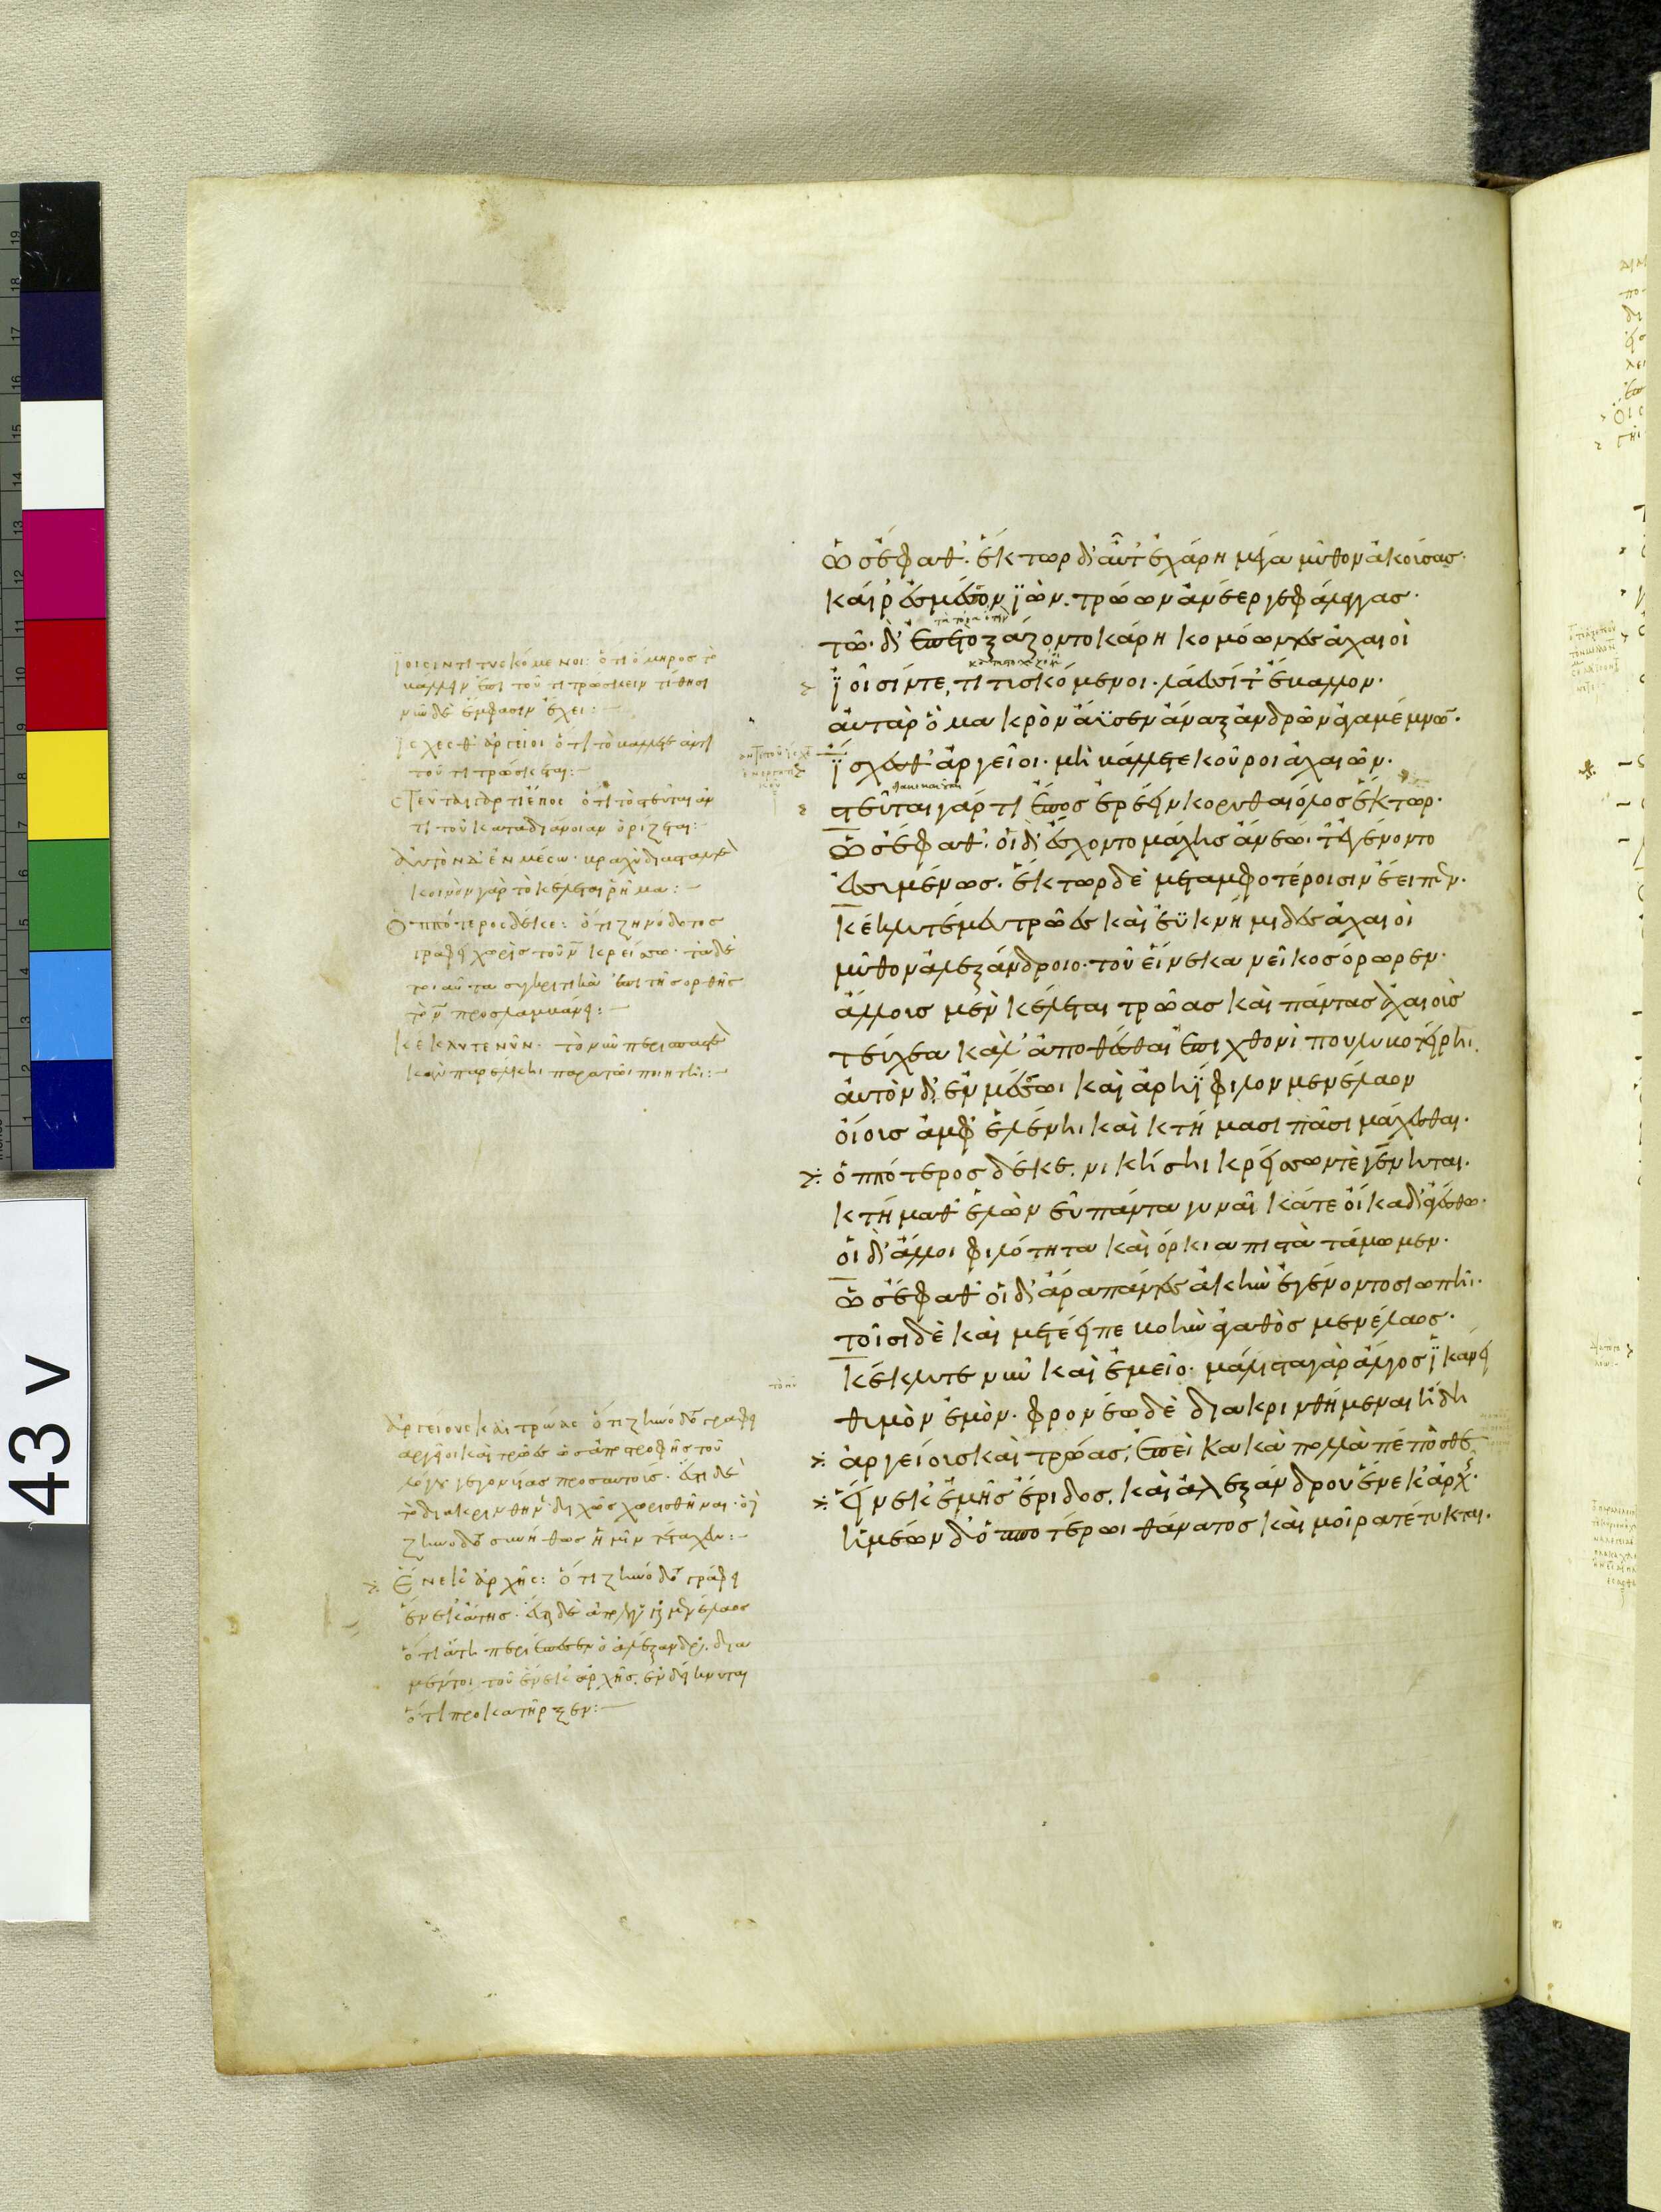 ὣς ἔφαθ'. ἕκτωρ δ' αὖτ' ἐχάρη μέγα μῦθον ἀκούσας·
καί ῥ' ἐς μέσσον ἰὼν. τρώων ἀνέεργε φάλαγγας·
τῶι δ' ἐπετοξάζοντο κάρη κομόωντες ἀχαιοὶ
ἰοῖσίν τε, τιτυσκόμενοι· λάεσσί τ' ἔβαλλον·
αὐτὰρ ὃ μακρὸν ἄϋσεν ἄναξ ἀνδρῶν ἀγαμέμνων·
ἴσχεσθ' ἀργεῖοι· μὴ βάλλετε κοῦροι ἀχαιῶν·
στεῦται γάρ τι ἔπος ἐρέειν κορυθαιόλος ἕκτωρ·
ὣς ἔφαθ'· οἳ δ' ἔσχοντο μάχης ἄνεωί τ' ἐγένοντο
ἐσσυμένως· ἕκτωρ δὲ μετ' ἀμφοτέροισιν ἔειπεν·
κέκλυτέ μευ τρῶες καὶ ἐϋκνήμιδες ἀχαιοὶ
μῦθον ἀλεξάνδροιο· τοῦ εἵνεκα νεῖκος ὄρωρεν·
ἄλλους μὲν κέλεται τρῶας καὶ πάντας ἀχαιοὺς
τεύχεα κάλ' ἀποθέσθαι ἐπι χθονὶ πουλυβοτείρηι.
αὐτὸν δ' ἐν μέσσωι καὶ ἀρηΐφιλον μενέλαον
οἴους ἀμφ' ἑλένηι καὶ κτήμασι πᾶσι μάχεσθαι·
ὁππότερος δέ κε νικήσηι κρείσσων τε γένηται·
κτήμαθ' ἑλὼν εὖ πάντα γυναῖκά τε οἴκαδ' ἀγέσθω·
οἳ δ' ἄλλοι φιλότητα καὶ ὅρκια πιστὰ τάμωμεν·
ὣς ἔφαθ' οἳ δ' ἄρα πάντες ἀκὴν ἐγένοντο σιωπῆι·
τοῖσι δὲ καὶ μετέειπε βοὴν ἀγαθὸς μενέλαος·
κέκλυτε νῦν καὶ ἐμεῖο· μάλιστα γὰρ ἄλγος ἱκάνει
θυμὸν ἐμὸν· φρονέω δὲ διακρινθήμεναι ἤδη
ἀργείους καὶ τρῶας, ἐπεὶ κακὰ πολλὰ πέποσθε
εἵνεκ' ἐμῆς ἔριδος, καὶ ἀλεξάνδρου ἕνεκ' ἀρχῆς·
ἡμέων δ' ὁπποτέρωι θάνατος καὶ μοῖρα τέτυκται·
ἰοῖσιν τιτυσκόμενοι: ὅτι ὅμηρος τὸ
βάλλειν ἐπὶ τοῦ τιτρώσκειν τίθησι
νῦν δὲ ἔμφασιν ἔχει:
ἴσχεσθ' ἀργεῖοι ὅτι τὸ βάλλετε ἀντὶ
τοῦ τιτρώσκεται:
στεῦται γάρ τι ἔπος ὅτι τὸ στεῦται ἀν
τὶ τοῦ κατὰ διάνοιαν ὁρίζεται:
αὐτὸν δ' ἐν μέσω· βραχὺ διασταλτέον
κοινὸν γὰρ τὸ κέλεται ῥῆμα:
ὁππότερος δέ κε: ὅτι ζηνόδοτος
γράφει χωρὶς τοῦ ν κρείσσω· τὰ δὲ
τοιαῦτα συγκριτικὰ ἐπὶ τῆς ὀρθῆς
τὸ ν προσλαμβάνει:
κέκλυτε νῦν· τὸ νῦν περισπαστέον
κἂν παρέλκηι παρὰ τῶι ποιητῆι:
ἀργείους καὶ τρῶας ὅτι ζηνόδοτος γράφει
ἀργεῖοι καὶ τρῶες ὡς ἀποστροφῆς τοῦ
λόγου γεγονυίας πρὸς αὐτούς· ἔτι δὲ
τὸ διακρινθῆναι διχῶς χωρισθῆναι· ὁ
ζηνόδοτος
ἕνεκ' ἀρχῆς: ὅτι ζηνόδοτος γράφει
ἕνεκ' ἄτης· ἔσται δὲ ἀπολογούμενος μενέλαος
ὅτι ἄτηι περιέπεσεν ὁ ἀλέξανδρος. διὰ
μέντοι τοῦ ἕνεκ' ἀρχῆς, ἐνδείκνυται
ὅτι προκατῆρξεν:
43 v